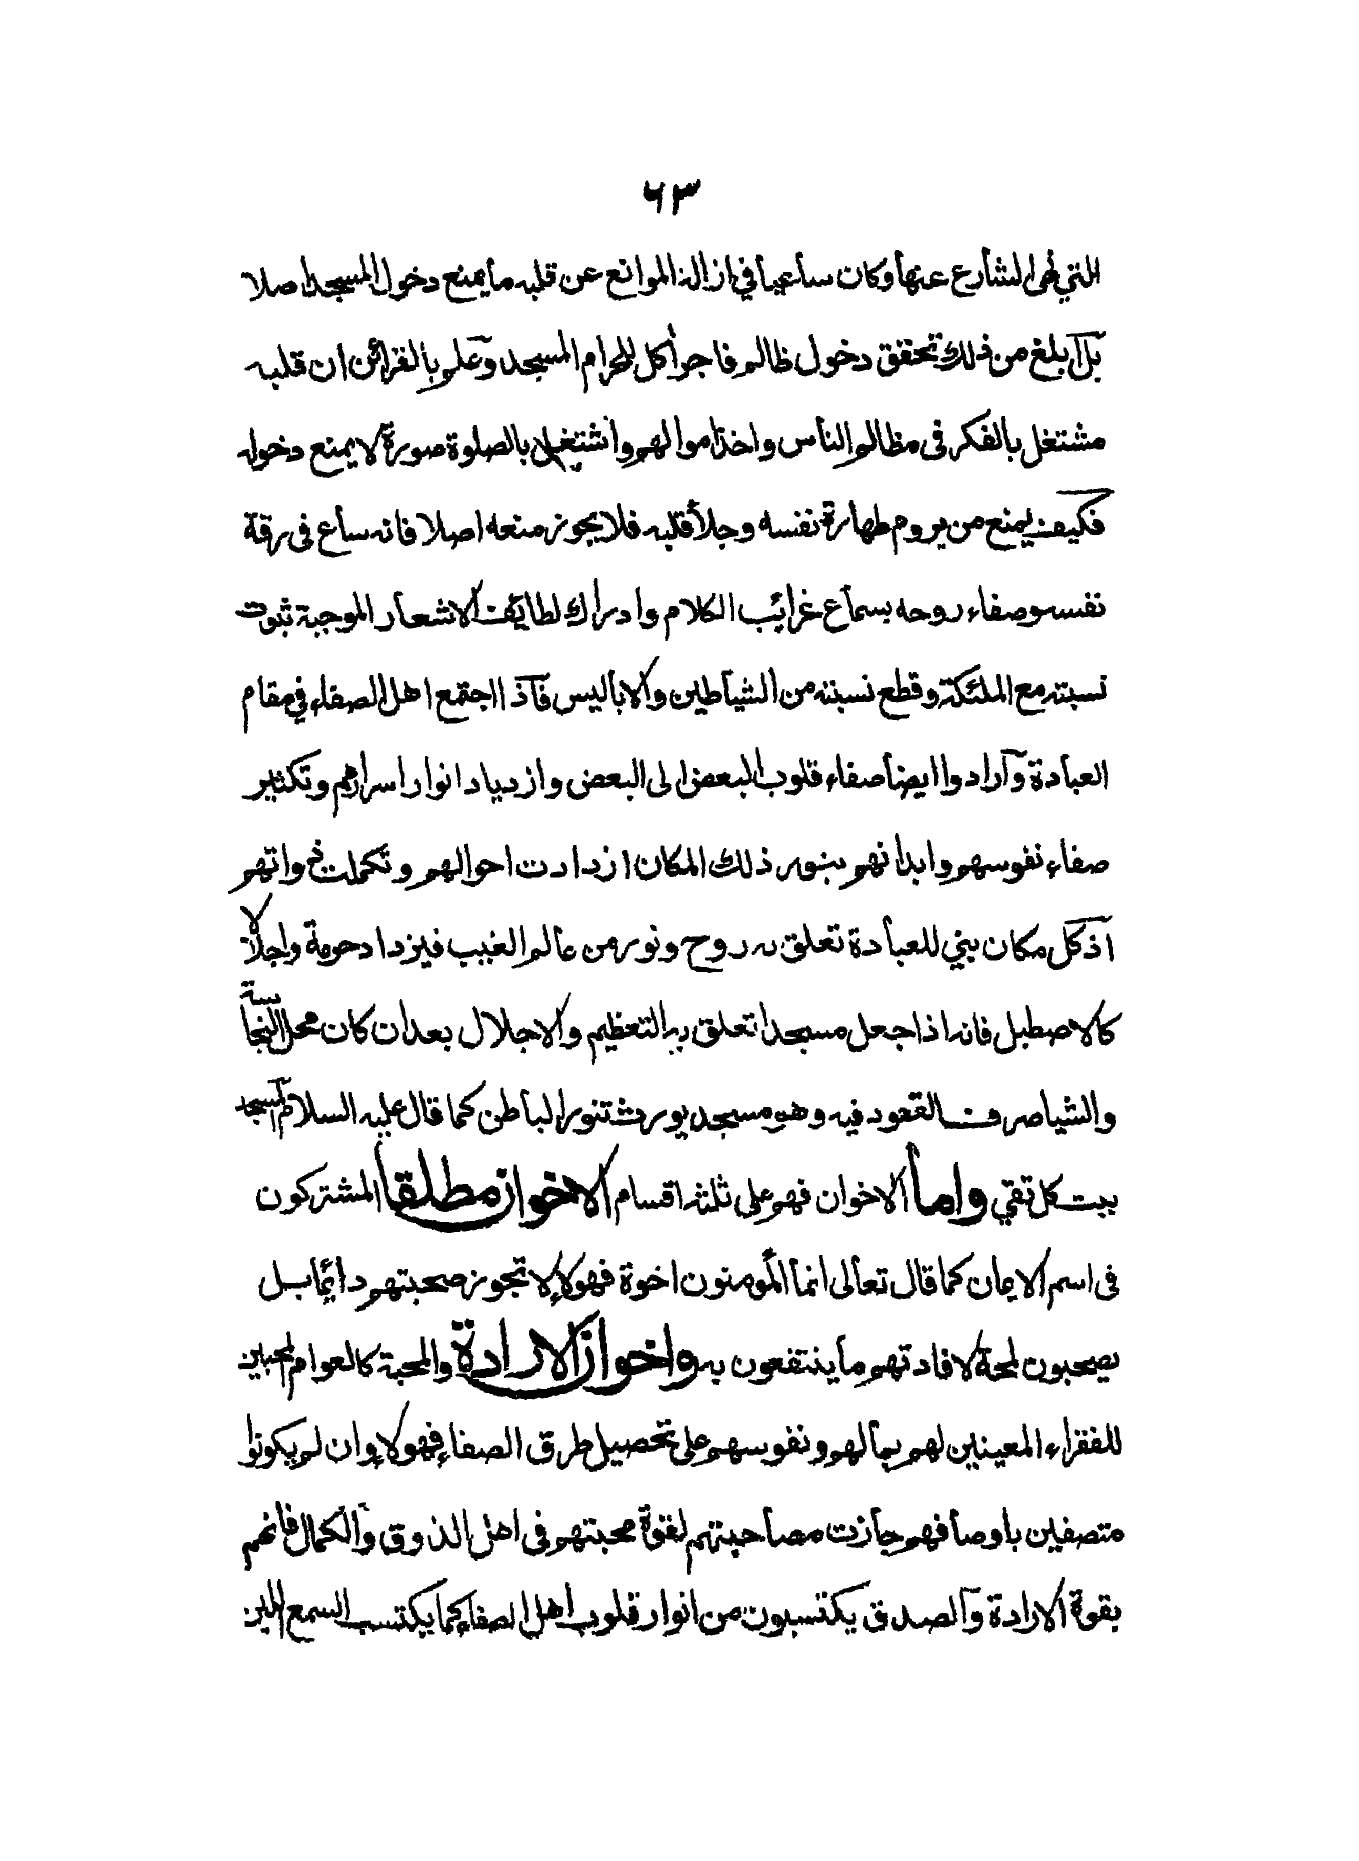 ٦٣
التي نهى الشارع عنها وكان ساعيا في ازالة الموانع عن قلبه ما يمنع دخول المسجد اصلا
بل ابلغ من ذلك تحقق دخول ظالم فاجر اكل للحرام المسجد وعلم بالقرائن ان قلبه
مشتغل بالفكر في مظالم الناس واخذ اموالهم واشتغل بالصلوة صورة لا يمنع دخوله
فكيف يمنع من يروم طهارة نفسه وجلأ قلبه فلا يجوز منعه اصلا فانه ساع في رقة
نفسه وصفاء روحه بسماع غرائب الكلام وادراك لطائف الاشعار الموجبة ثبوت
نسبته مع الملئكة وقطع نسبته من الشياطين والاباليس فاذا اجتمع اهل الصفاء في مقام
العبادة وارادوا ايضا صفاء قلوب البعض الى البعض وازدياد انوار اسرارهم وتكثير
صفاء نفوسهم وابدانهم بنور ذلك المكان ازدادت احوالهم وتكملت خواتهم
اذ كل مكان بني للعبادة تعلق به روح ونور من عالم الغيب فيزداد حرمة واجلالا
كالاصطبل فانه اذا جعل مسجدا تعلق به التعظيم والاجلال بعد ان كان محل النجاسة
والشياطين القعود فيه وهو مسجد يورث تنوير الباطن كما قال عليه السلام المسجد
بيت كل تقي واما الاخوان فهو على ثلثة اقسام الاخوان مطلقا المشتركون
في اسم الايمان كما قال تعالى انما المؤمنون اخوة فهؤلاء لا تجوز صحبتهم دائما بل
يصحبون لمحة لافادتهم ما ينتفعون به واخوان الارادة والمحبة كالعوام المحبين
للفقراء المعينين لهم بمالهم ونفوسهم على تحصيل طرق الصفاء فهؤلاء وان لم يكونوا
متصفين باوصافهم جازت مصاحبتهم لقوة محبتهم في اهل الذوق والكمال فانهم
بقوة الارادة والصدق يكتسبون من انوار قلوب اهل الصفاء كما يكتسب السمع اللين